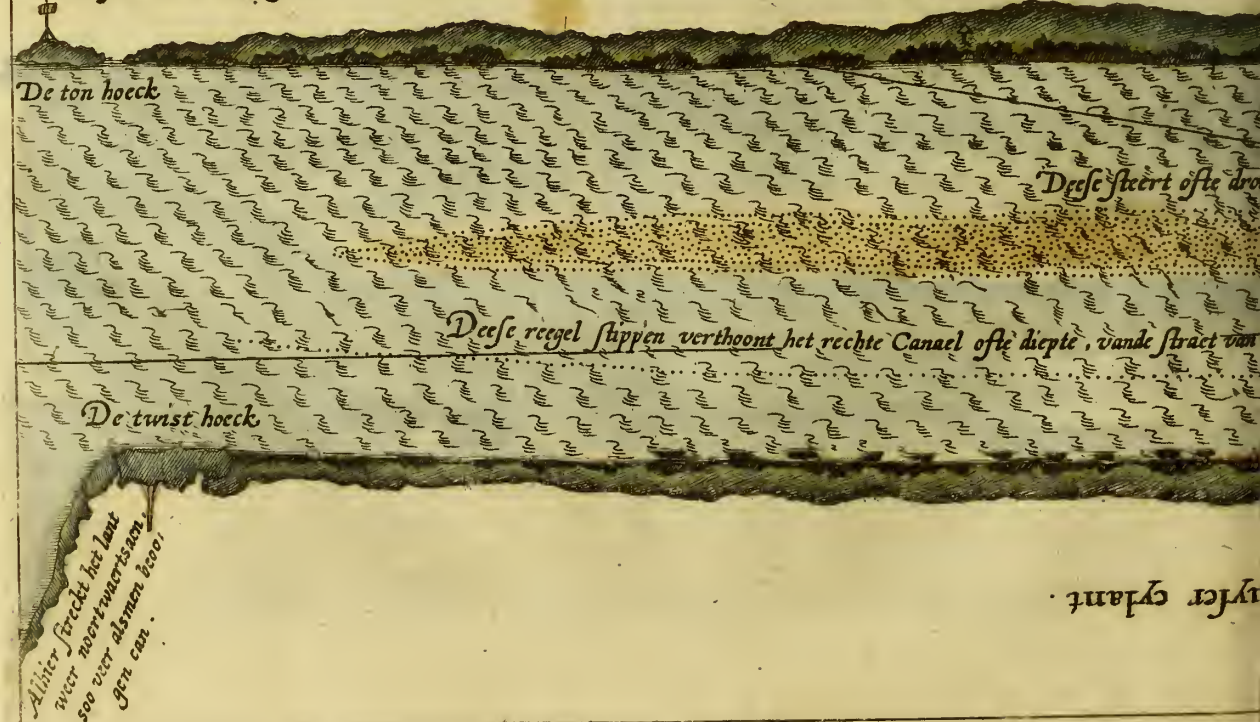 De ton hoeck
Deese steert ofte
Deese reegel stippen verthoont het rechte Canael ofte diepte, vande straet van
De twist hoeck
Alhier streckt het lant
weer noortwaertsaen,
soo veer alsmen beoo:
gen can.
eylant.